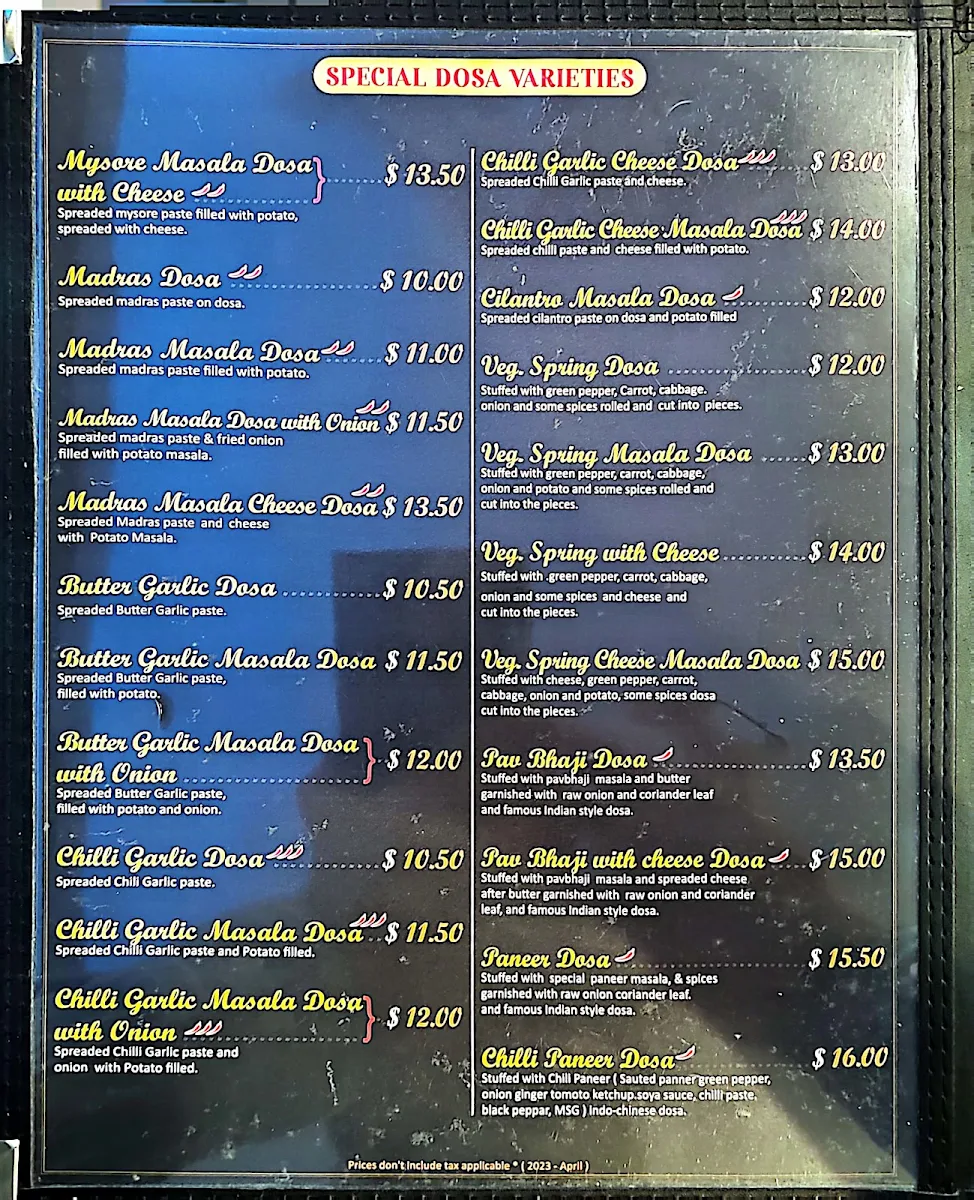 SPECIAL DOSA VARIETIES
Mysore Masala Dosa
with Cheese ........ $ 13.50
Spreaded mysore paste filled with potato,
spreaded with cheese.
Madras Dosa ........ $ 10.00
Spreaded madras paste on dosa.
Madras Masala Dosa ........ $ 11.00
Spreaded madras paste filled with potato.
Madras Masala Dosa with Onion $ 11.50
Spreaded madras paste & fried onion
filled with potato masala.
Madras Masala Cheese Dosa $ 13.50
Spreaded Madras paste and cheese
with Potato Masala.
Butter Garlic Dosa ........ $ 10.50
Spreaded Butter Garlic paste.
Butter Garlic Masala Dosa $ 11.50
Spreaded Butter Garlic paste,
filled with potato.
Butter Garlic Masala Dosa
with Onion ........ $ 12.00
Spreaded Butter Garlic paste,
filled with potato and onion.
Chilli Garlic Dosa ........ $ 10.50
Spreaded Chili Garlic paste.
Chilli Garlic Masala Dosa ... $ 11.50
Spreaded Chilli Garlic paste and Potato filled.
Chilli Garlic Masala Dosa
with Onion ........ $ 12.00
Spreaded Chilli Garlic paste and
onion with Potato filled.
Chilli Garlic Cheese Dosa $ 13.00
Spreaded Chilli Garlic paste and cheese.
Chilli Garlic Cheese Masala Dosa $ 14.00
Spreaded chilli paste and cheese filled with potato.
Cilantro Masala Dosa ........ $ 12.00
Spreaded cilantro paste on dosa and potato filled
Veg. Spring Dosa ........ $ 12.00
Stuffed with green pepper, Carrot, cabbage.
onion and some spices rolled and cut into pieces.
Veg. Spring Masala Dosa ...... $ 13.00
Stuffed with green pepper, carrot, cabbage,
onion and potato and some spices rolled and
cut into the pieces.
Veg. Spring with Cheese ........ $ 14.00
Stuffed with .green pepper, carrot, cabbage,
onion and some spices and cheese and
cut into the pieces.
Veg. Spring Cheese Masala Dosa $ 15.00
Stuffed with cheese, green pepper, carrot,
cabbage, onion and potato, some spices dosa
cut into the pieces.
Pav Bhaji Dosa ........ $ 13.50
Stuffed with pavbhaji masala and butter
garnished with raw onion and coriander leaf
and famous Indian style dosa.
Pav Bhaji with cheese Dosa .... $ 15.00
Stuffed with pavbhaji masala and spreaded cheese
after butter garnished with raw onion and coriander
leaf, and famous Indian style dosa.
Paneer Dosa ........ $ 15.50
Stuffed with special paneer masala, & spices
garnished with raw onion coriander leaf.
and famous Indian style dosa.
Chilli Paneer Dosa $ 16.00
Stuffed with Chili Paneer ( Sauted panner green pepper,
onion ginger tomoto ketchup.soya sauce, chilli paste,
black peppar, MSG ) indo-chinese dosa.
Prices don't Include tax applicable * ( 2023 - April )